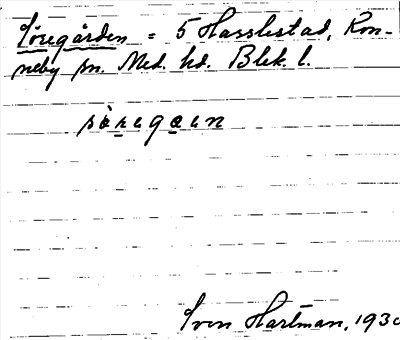 Sönegården = 5 Hasslestad, Ron-
neby sn. Med. hd. Blek. l.
sònega̱ɛn
Sven Hartman, 1930